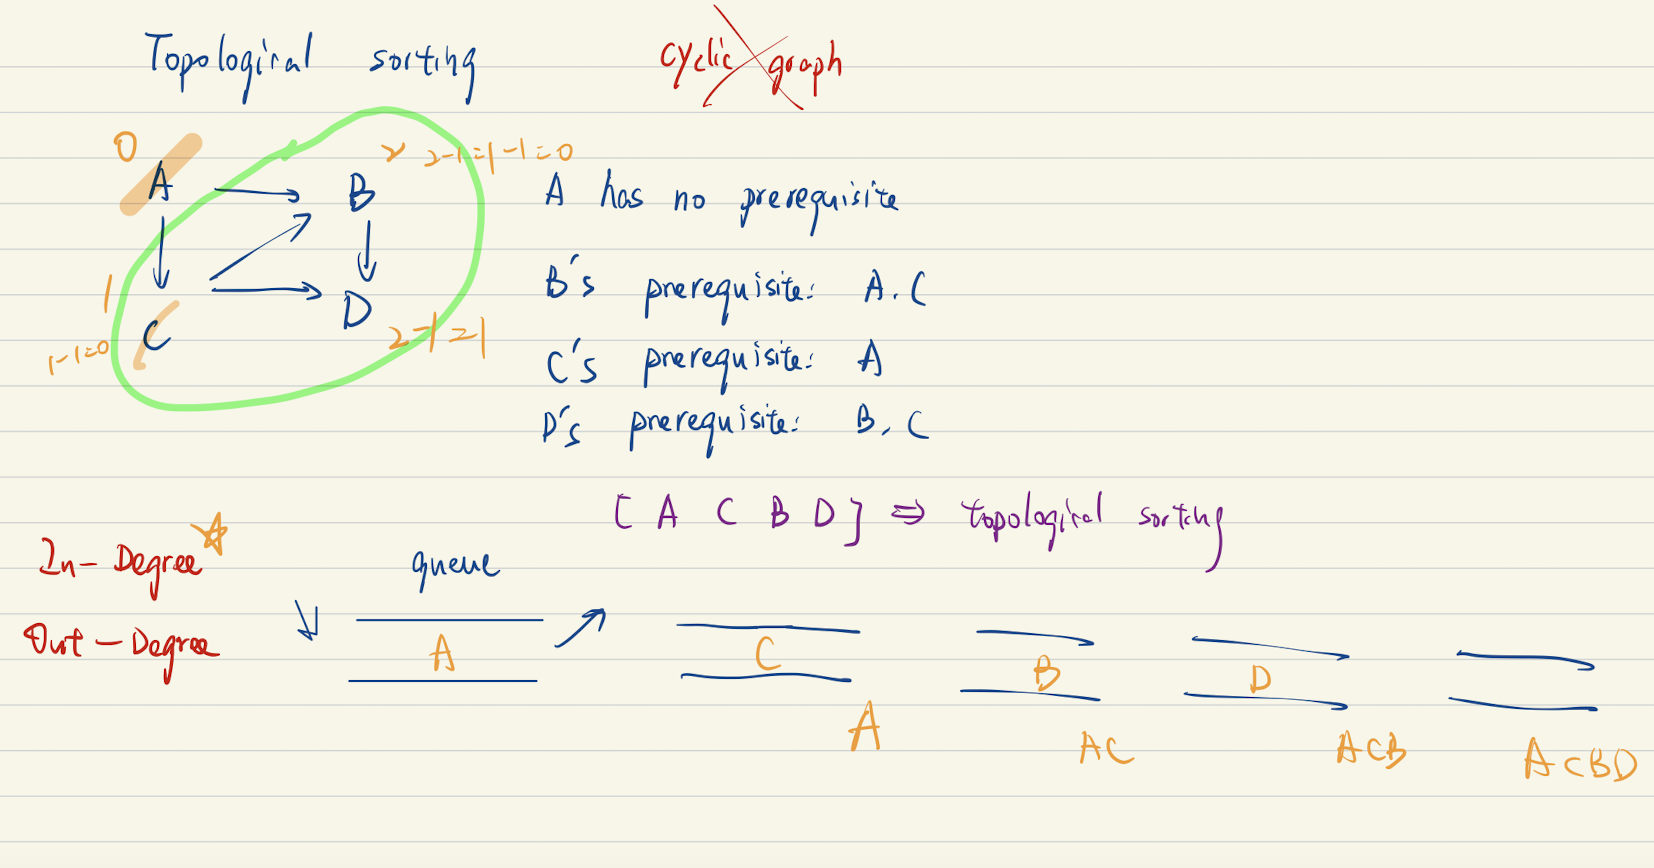 Topological sorting
cyclic graph
0
A
B
2 2-1=1-1=0
A has no prerequisite
1
C
D
1-1=0
2-1=1
B's prerequisite: A, C
C's prerequisite: A
D's prerequisite: B, C
[ A C B D ] => topological sorting
In-Degree
Out-Degree
queue
A
C
B
D
A
AC
ACB
ACBD